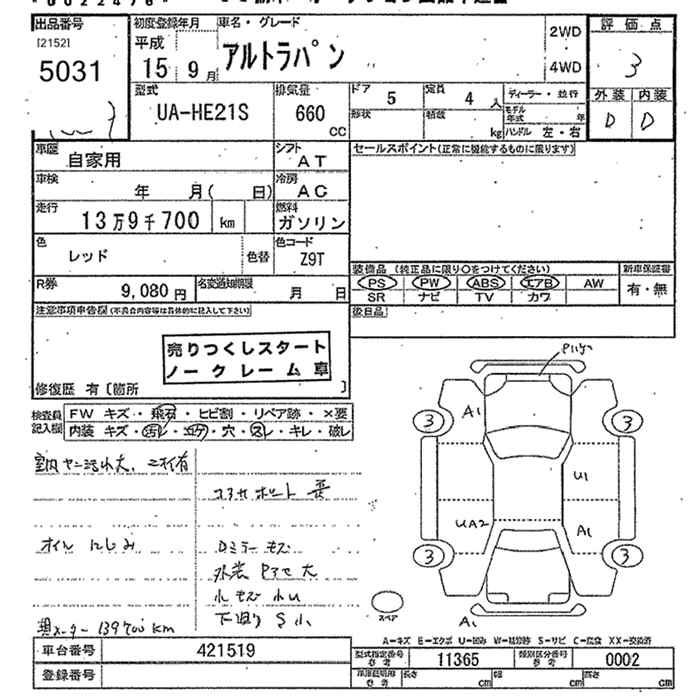 出品番号
[2152]
5031
初度登録年月
平成
15年 9月
車名・グレード
アルトラパン
2WD
4WD
評価点
3
外装 内装
D D
型式
UA-HE21S
排気量
660
cc
ドア
5
定員
4 人
形状
積載
kg
ディーラー・並行
モデル年式
年
ハンドル 左・右
車歴
自家用
シフト
AT
セールスポイント(正常に機能するものに限ります)
車検
年 月( 日)
冷房
AC
走行
13万9千700 km
燃料
ガソリン
色
レッド
色替
色コード
Z9T
装備品 (純正品に限り○をつけてください)
PS PW ABS エアB AW
SR ナビ TV カワ
新車保証書
有・無
R券
9,080 円
名変通知期限
月 日
後日品
注意事項申告欄(不具合内容等は具体的に記入して下さい)
売りつくしスタート
ノークレーム車
修復歴 有 [箇所 ]
検査員記入欄
FW キズ・飛石・ヒビ割・リペア跡・×要
内装 キズ・汚レ・コゲ・穴・スレ・キレ・破レ
コアサポート
オイルにじみ
Dミラーキズ
外装
下廻りS小
メーター 139700KM
A1
3
3
U1
UA2
A1
3
3
スペア
A1
A-キズ E-エクボ U-凹み W-補修跡 S-サビ C-腐食 XX-交換済
車台番号
421519
登録番号
型式指定番号
参考
11365
類別区分番号
参考
0002
参考
長さ cm
幅 cm
高さ cm